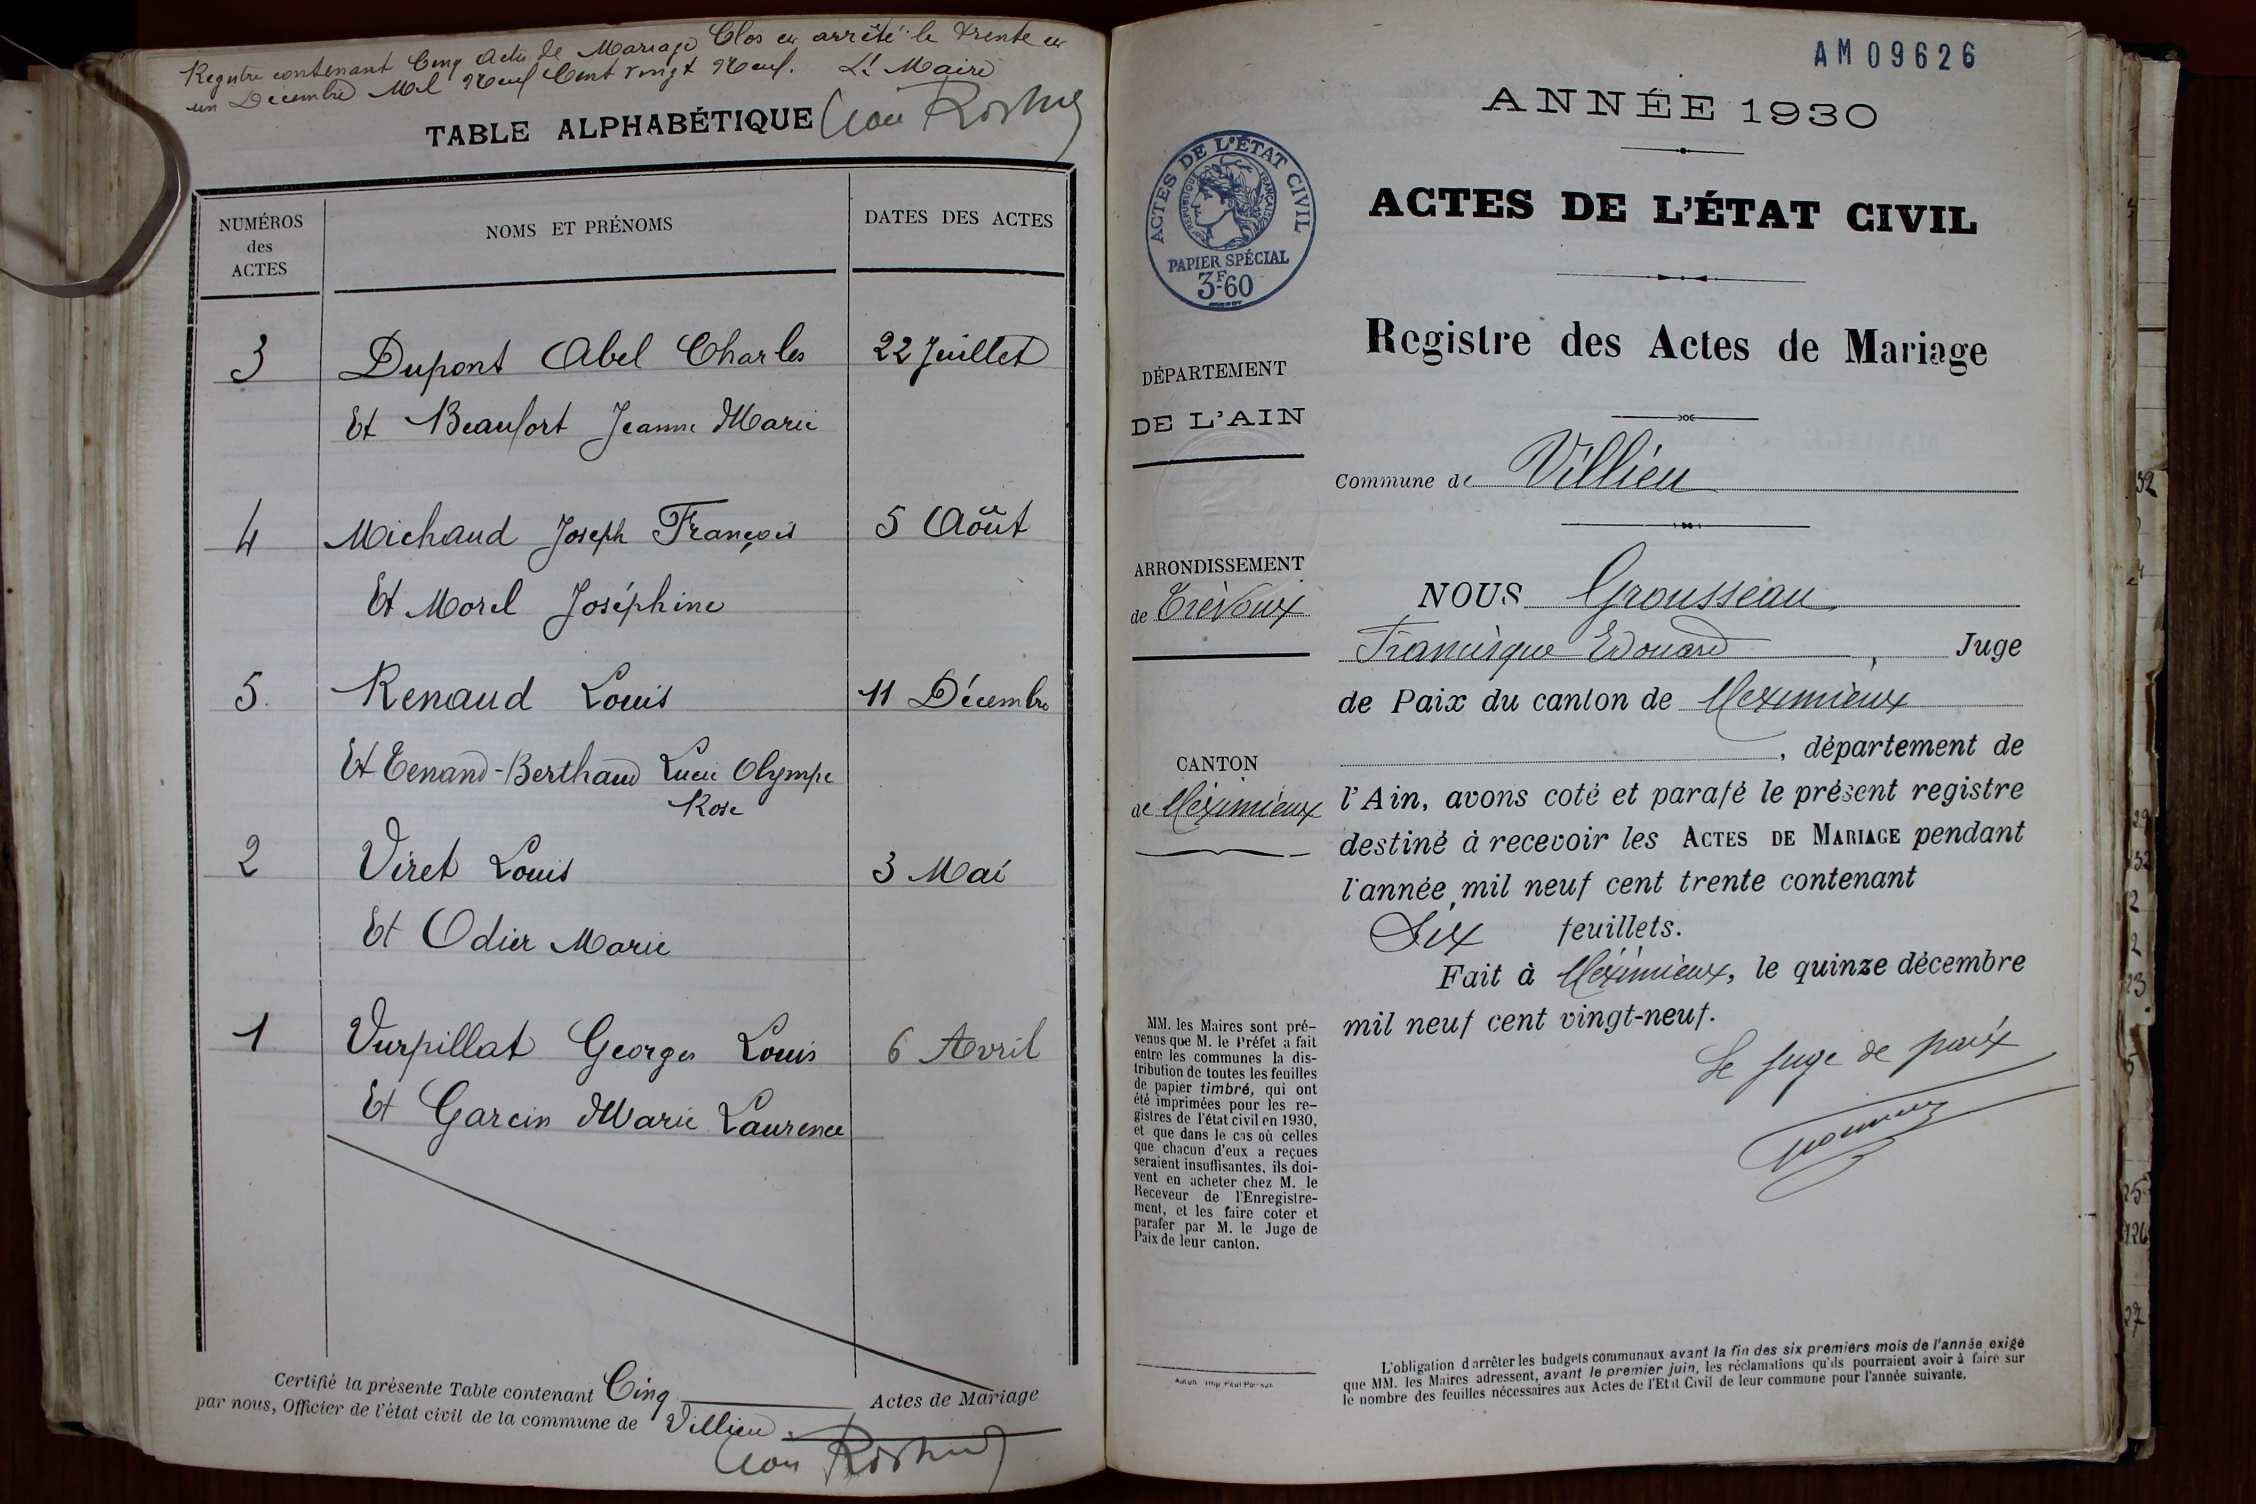 Registre contenant Cinq Actes de Mariage Clos et arrêté le trente et
un Décembre Mil Neuf Cent vingt Neuf. Le Maire
TABLE ALPHABÉTIQUE
NUMÉROS
des
ACTES
NOMS ET PRÉNOMS
DATES DES ACTES
3 Dupont Abel Charles 22 Juillet
Et Beaufort Jeanne Marie
4 Michaud Joseph François 5 Août
Et Morel Joséphine
5. Renaud Louis 11 Décembre
Et Tenand-Berthaud Lucie Olympe
Rose
2 Viret Louis 3 Mai
Et Odier Marie
1 Vurpillat Georges Louis 6 Avril
Et Garcin Marie Laurence
Certifié la présente Table contenant Cinq Actes de Mariage
par nous, Officier de l'état civil de la commune de Villieu.
AM 09626
ANNÉE 1930
ACTES DE L'ÉTAT CIVIL
RÉPUBLIQUE FRANÇAISE
PAPIER SPÉCIAL
3F.60
ACTES DE L'ÉTAT CIVIL
Registre des Actes de Mariage
DÉPARTEMENT
DE L'AIN
Commune de Villieu
ARRONDISSEMENT
de Trévoux
CANTON
de Méximieux
NOUS Grousseau
Francisque Edouard, Juge
de Paix du canton de Meximieux
, département de
l'Ain, avons coté et parafé le présent registre
destiné à recevoir les ACTES DE MARIAGE pendant
l'année mil neuf cent trente contenant
Six feuillets.
Fait à Méximieux, le quinze décembre
mil neuf cent vingt-neuf.
Le Juge de paix
MM. les Maires sont pré-
venus que M. le Préfet a fait
entre les communes la dis-
tribution de toutes les feuilles
de papier timbré, qui ont
été imprimées pour les re-
gistres de l'état civil en 1930,
et que dans le cas où celles
que chacun d'eux a reçues
seraient insuffisantes, ils doi-
vent en acheter chez M. le
Receveur de l'Enregistre-
ment, et les faire coter et
parafer par M. le Juge de
Paix de leur canton.
L'obligation d'arrêter les budgets communaux avant la fin des six premiers mois de l'année exige
que MM. les Maires adressent, avant le premier juin, les réclamations qu'ils pourraient avoir à faire sur
le nombre des feuilles nécessaires aux Actes de l'Etat Civil de leur commune pour l'année suivante.